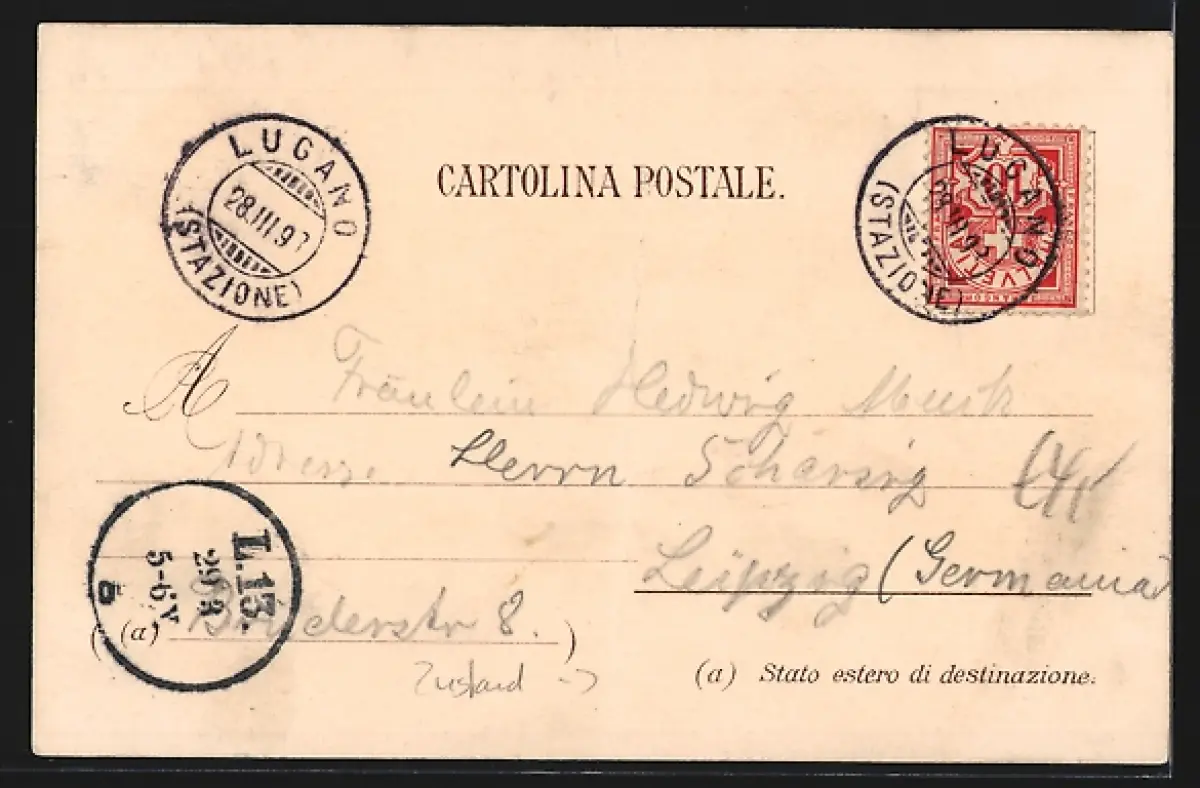 LUGANO
28.III.97
(STAZIONE)
CARTOLINA POSTALE.
LUGANO
28.III.97
(STAZIONE)
10
HELVETIA
A Fräulein Hedwig
Adresse Herrn Scharsig
Leipzig (Germania
L.13.
29 3
5-6V
(a) Bruderstr 8.
Zustand
(a) Stato estero di destinazione.